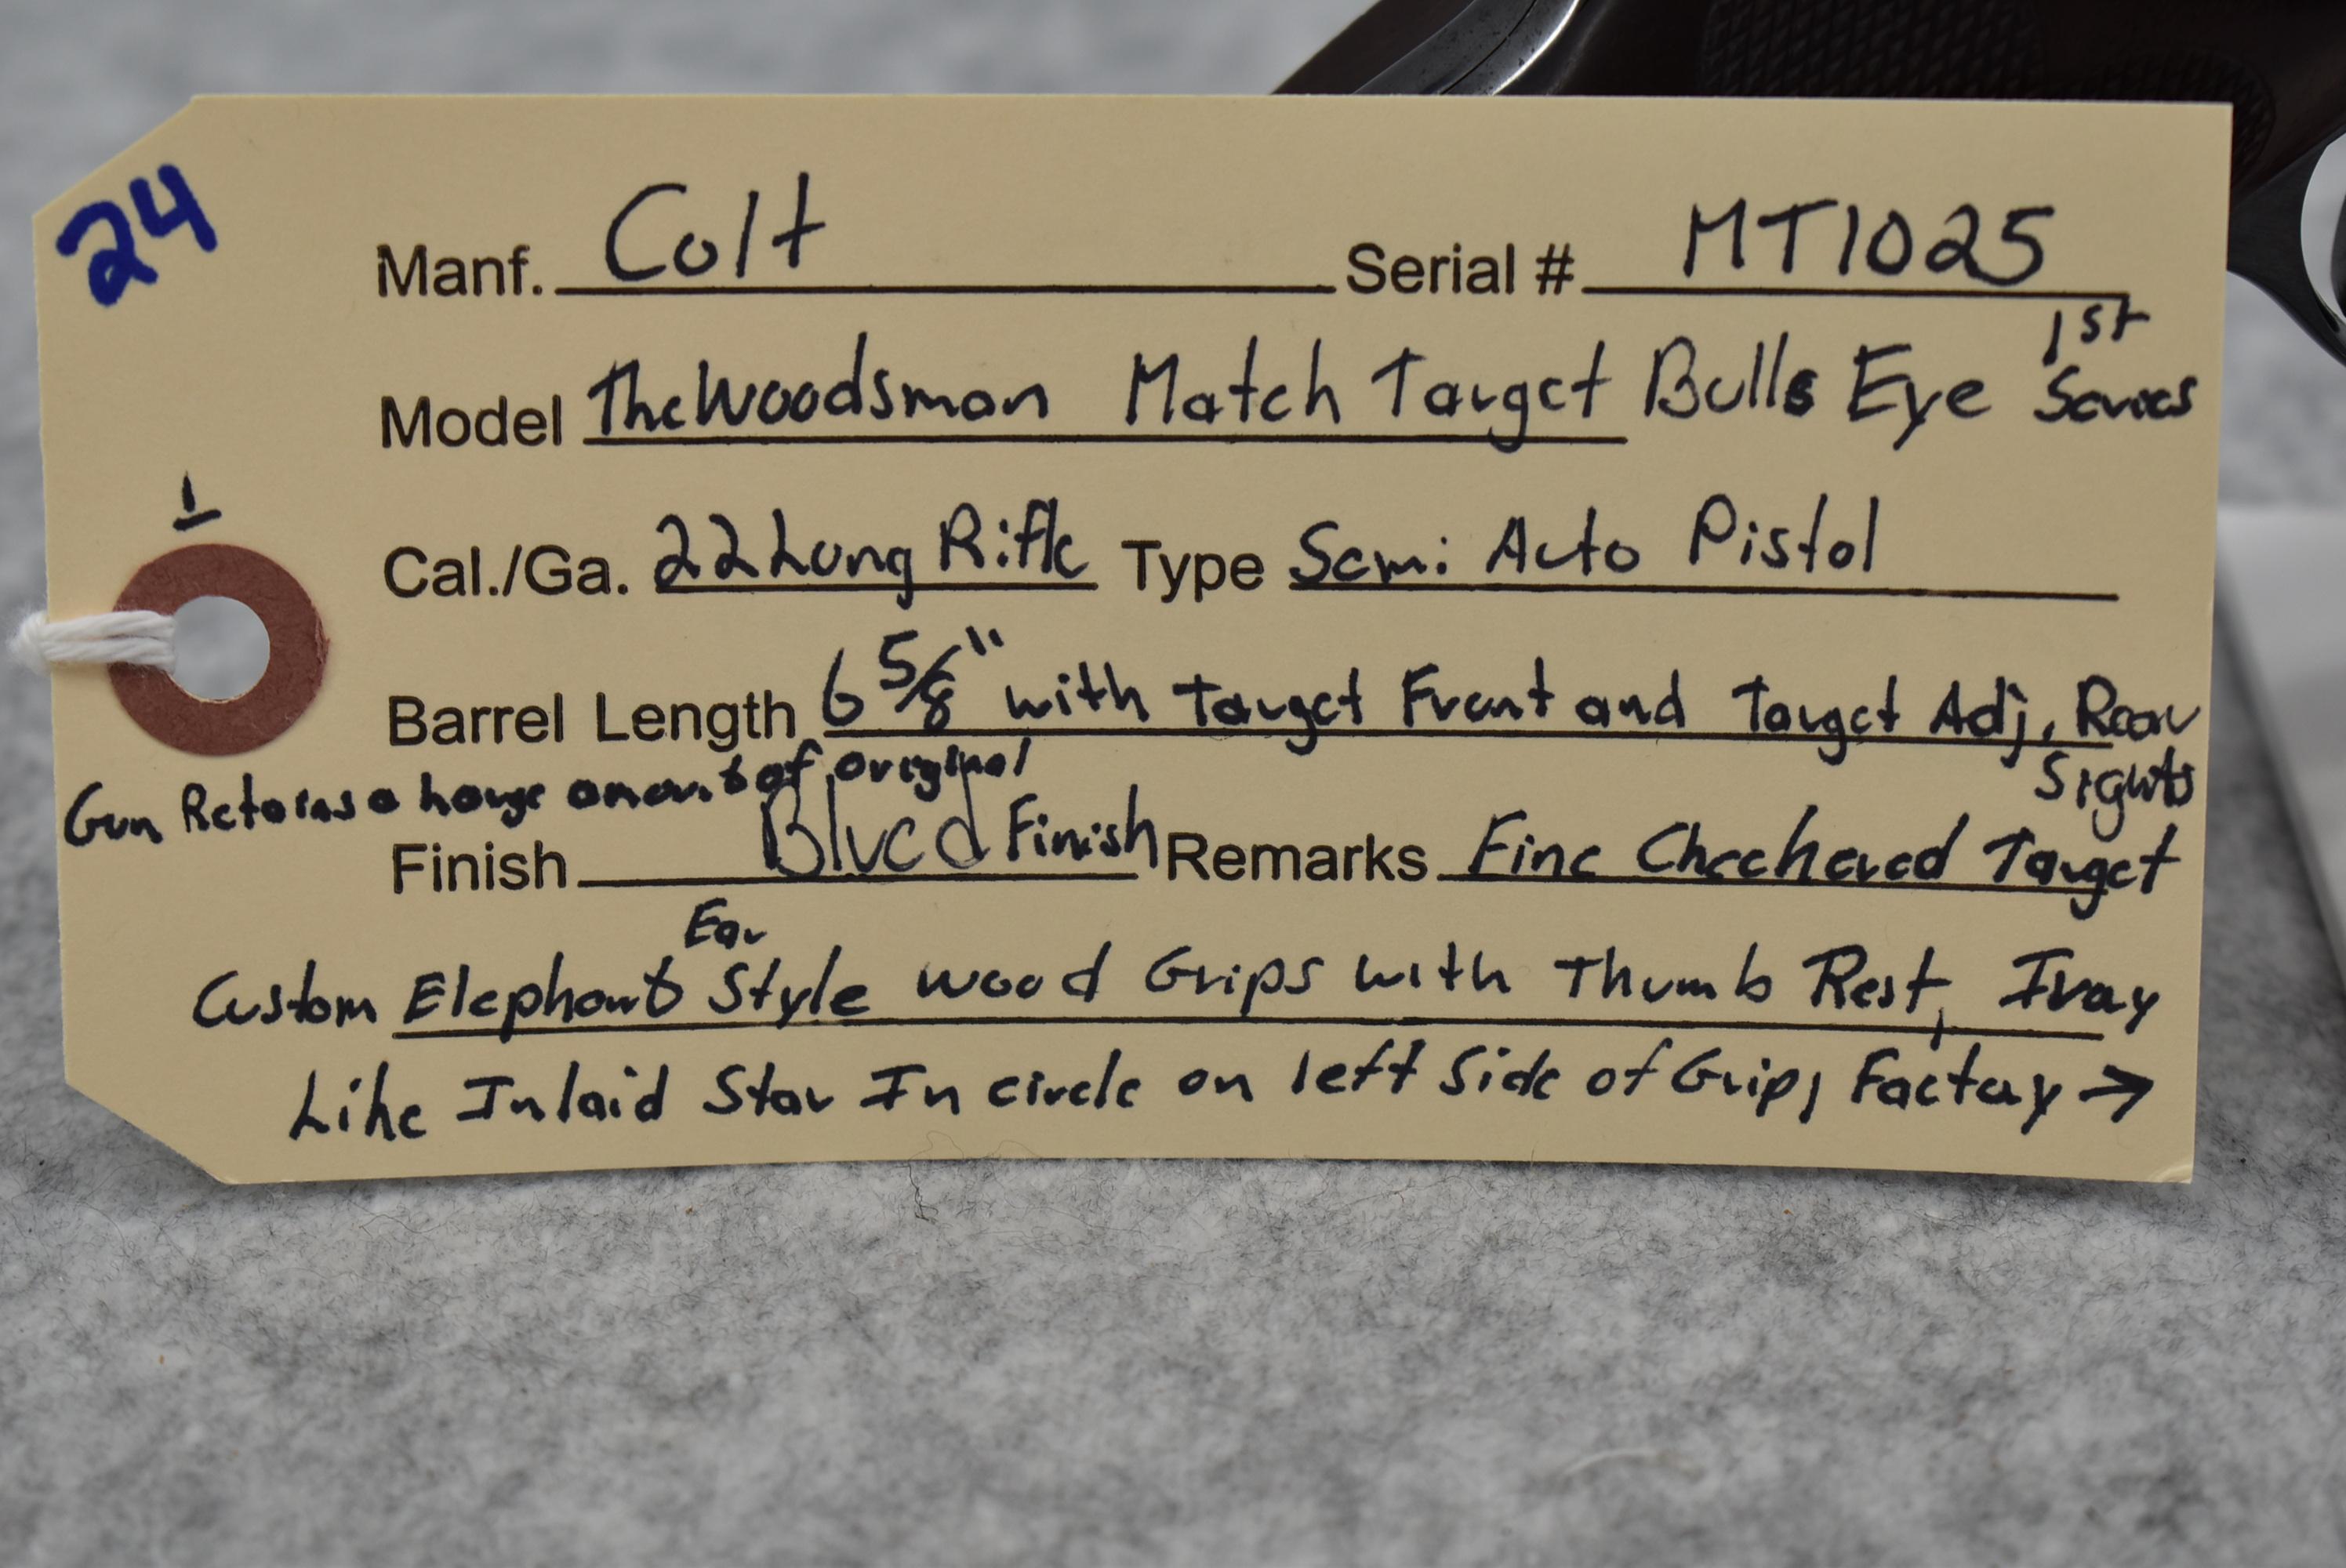 24
Manf. Colt Serial # MT1025
Model The Woodsman Match Target Bulls Eye 1st Series
1
Cal./Ga. 22 Long Rifle Type Semi Auto Pistol
Barrel Length 6 5/8" with Target Front and Target Adj. Rear Sights
Gun Retains a large amount of original
Finish Blued Finish Remarks Fine Checkered Target
Custom Elephant Ear Style wood Grips with Thumb Rest, Ivory
Like Inlaid Star In circle on left Side of Grip, Factory →